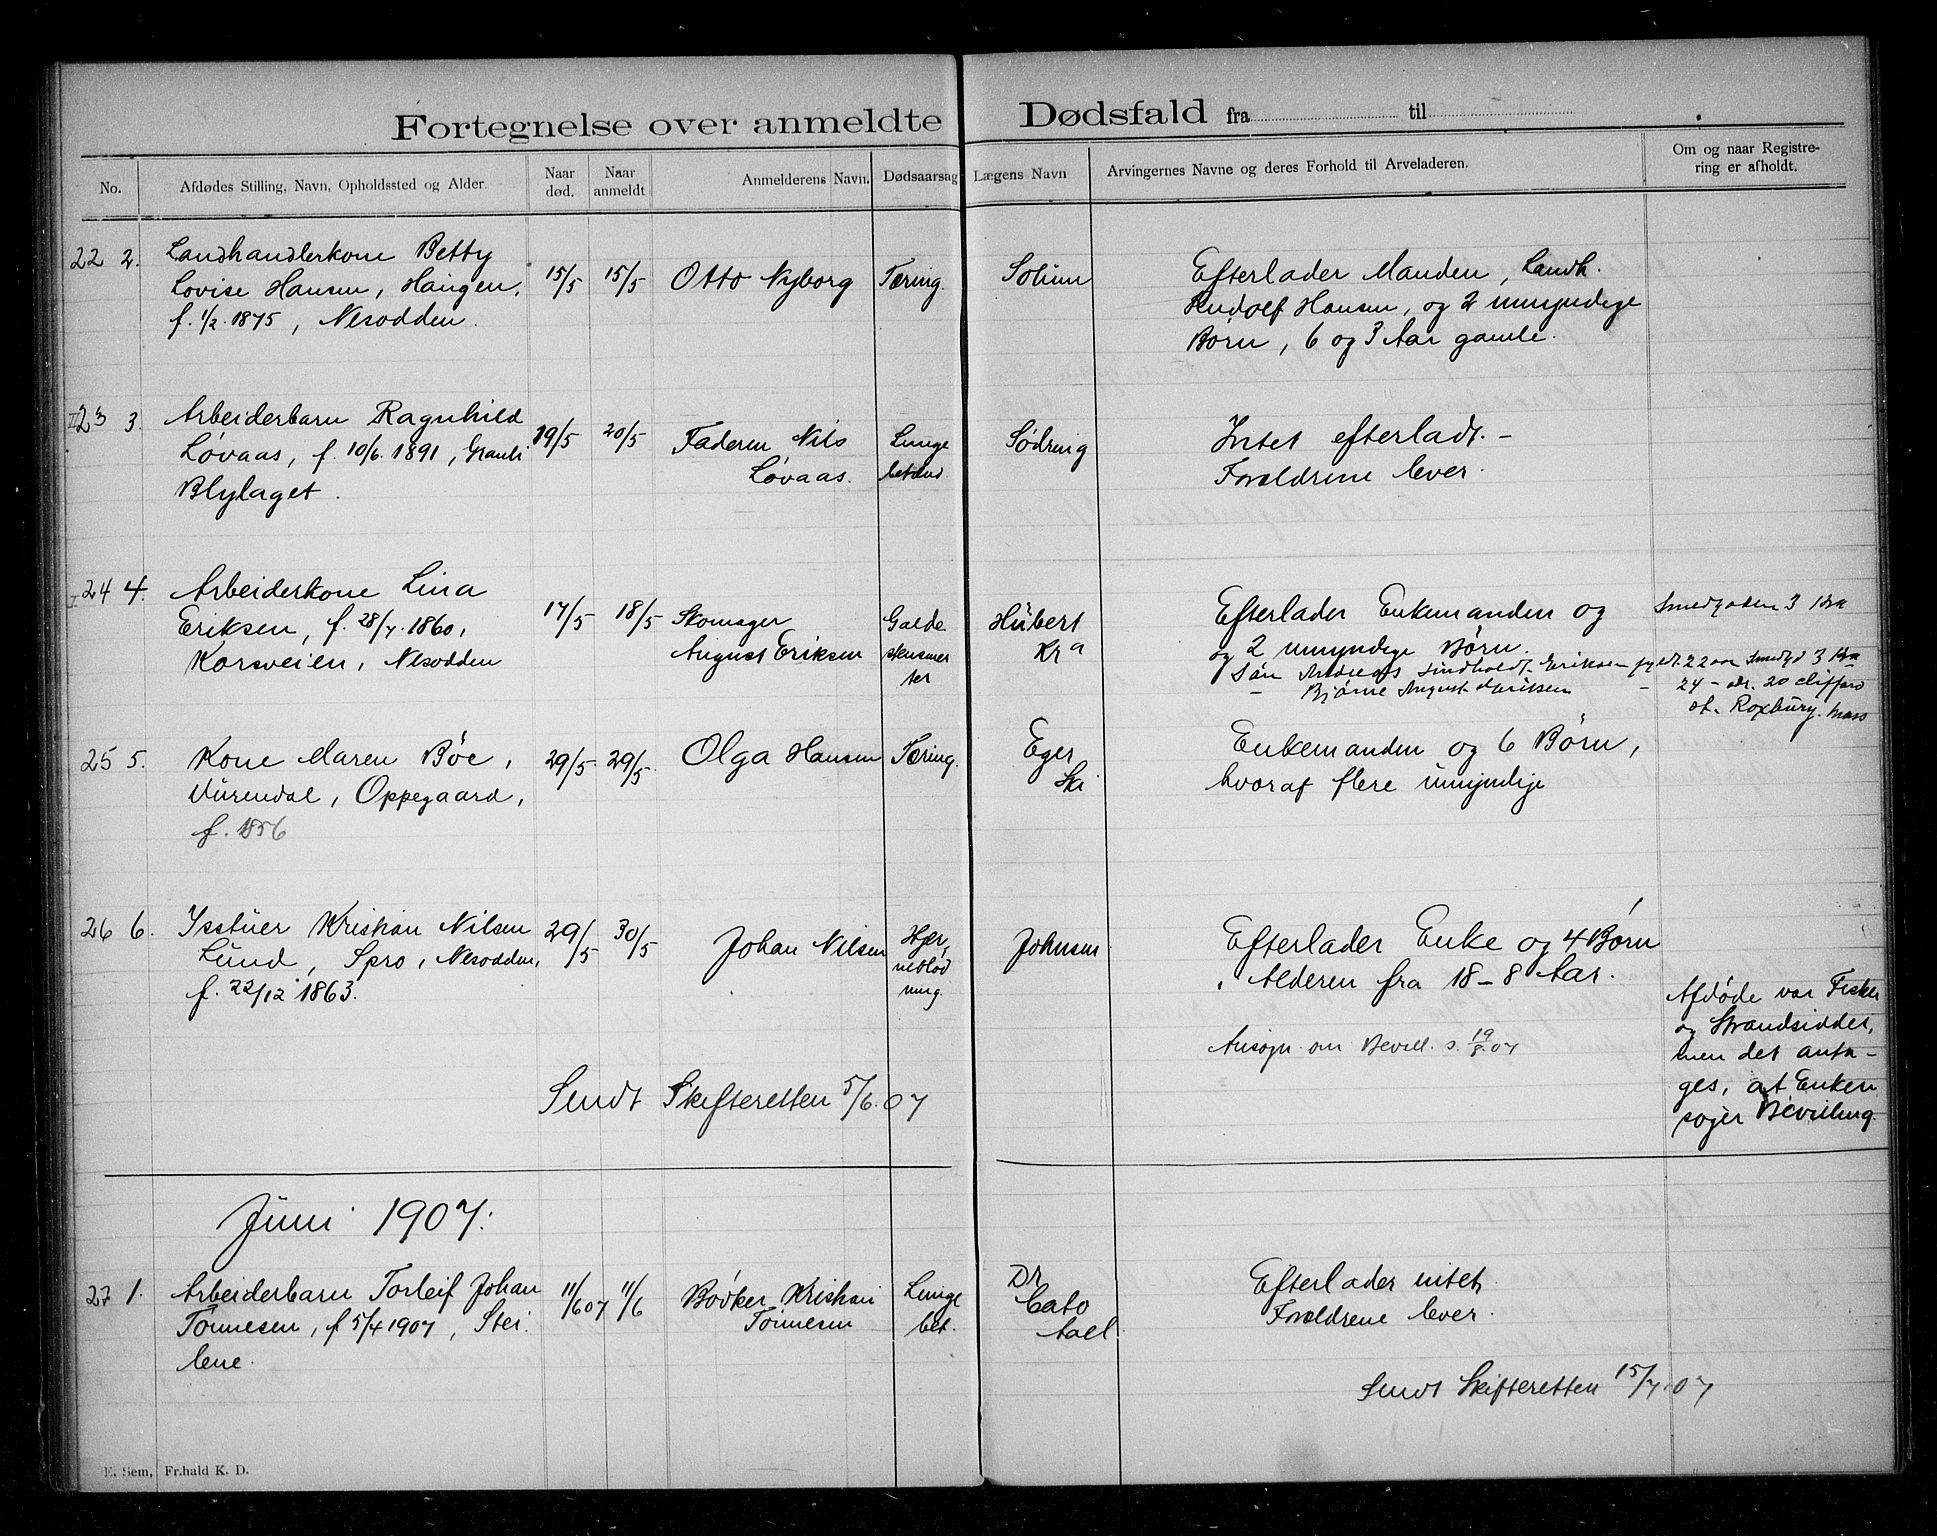 Fortegnelse over anmeldte Dødsfald fra til
No.
Afdødes Stilling, Navn, Opholdssted og Alder.
Naar død.
Naar anmeldt
Anmelderens Navn.
Dødsaarsag
Lægens Navn
Arvingernes Navne og deres Forhold til Arveladeren.
Om og naar Registre-
ring er afholdt.
22 2.
Landhandlerkone Betty
Lovise Hansen, Haugen,
f. 1/2. 1875, Nesodden.
15/5 15/5
Otto Nyborg
Tæring.
Solum
Efterlader Manden, Landh.
Rudolf Hansen, og 2 umyndige
Børn, 6 og 3 Aar gamle.
23 3.
Arbeiderbarn Ragnhild
Løvaas, f. 10/6. 1891, Granli
Blylaget.
19/5 20/5
Faderen Nils
Løvaas.
Lunge
betænd
Sødring
Intet efterladt. –
Forældrene lever.
24 4.
Arbeiderkone Lina
Eriksen, f. 28/7. 1860,
Korsveien, Nesodden
17/5 18/5
Skomager
August Eriksen
Galde
stensmer
ter
Hübert
Kra
Efterlader Enkemanden og
og 2 umyndige Børn.
Søn Andreas Lindholdt Eriksen 22 aar Smedgd 3 Kra
– Bjørne August Eriksen – 24 – adr. 20 Clifford
st. Roxbury. Mass
Smedgaden 3 Kra
25 5.
Kone Maren Bøe,
Oppegaard,
f. 1856
29/5. 29/5.
Olga Hansen
Tæring.
Eger
Ski
Enkemanden og 6 Børn,
hvoraf flere umyndige
26 6.
Isstuer Kristian Nilsen
Lund, Spro, Nesodden,
f. 22/12 1863.
29/5 30/5
Johan Nilsen
Hjer,
neblød
ning.
Johnsen
Efterlader Enke og 4 Børn
i Alderen fra 18–8 Aar.
Ansøgn om Bevill. s. 19/8.07
Afdøde var Fisker
og Strandsidder,
men det anta-
ges, at Enken
søger Bevilling.
Sendt Skifteretten 5/6.07
Juni 1907.
27 1.
Arbeiderbarn Torleif Johan
Tønnesen, f 5/4 1907, Stei.
lene.
11/6 07 11/6
Bødker Kristian
Tønnesen
Lunge
bet.
Dr
Cato
Aall
Efterlader intet,
Forældrene lever.
Sendt Skifteretten 15/7.07
E. Sem, Fr.hald K. D.